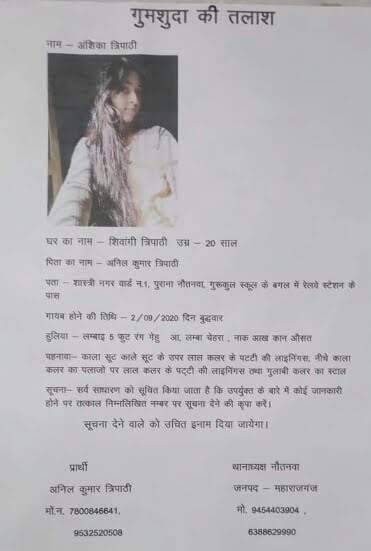 गुमशुदा की तलाश
नाम – अंशिका त्रिपाठी
घर का नाम – शिवांगी त्रिपाठी उम्र – 20 साल
पिता का नाम – अनिल कुमार त्रिपाठी
पता – शास्त्री नगर वार्ड न.1, पुराना नौतनवा, गुरूकुल स्कूल के बगल में रेलवे स्टेशन के
पास
गायब होने की तिथि – 2/09/2020 दिन बुद्धवार
हुलिया – लम्बाइ 5 फुट रंग गेहु आ, लम्बा चेहरा , नाक आख कान औसत
पहनावा– काला सूट काले सूट के उपर लाल कलर के पटटी की लाइनिंगस, नीचे काला
कलर का पलाजो पर लाल कलर के पट्टी की लाइनिंगस तथा गुलाबी कलर का स्टाल
सूचना– सर्व साधारण को सूचित किया जाता है कि उपर्युक्त के बारे में कोई जानकारी
होने पर तत्काल निम्नलिखित नम्बर पर सूचना देने की कृपा करें।
सूचना देने वाले को उचित इनाम दिया जायेगा।
प्रार्थी
अनिल कुमार त्रिपाठी
मों.न. 7800846641,
9532520508
थानाध्यक्ष नौतनवा
जनपद – महाराजगंज
मो. 9454403904 ,
6388629990